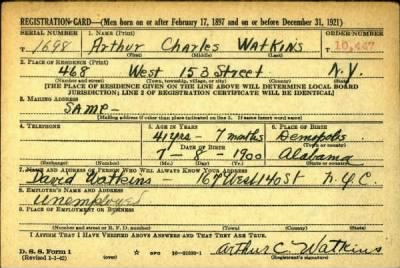 REGISTRATION CARD—(Men born on or after February 17, 1897 and on or before December 31, 1921)
SERIAL NUMBER 1. NAME (Print) ORDER NUMBER
T 1698 Arthur Charles Watkins T 10,447
(First) (Middle) (Last)
2. PLACE OF RESIDENCE (Print)
468 West 153 Street N.Y.
(Number and street) (Town, township, village, or city) (County) (State)
[THE PLACE OF RESIDENCE GIVEN ON THE LINE ABOVE WILL DETERMINE LOCAL BOARD
JURISDICTION; LINE 2 OF REGISTRATION CERTIFICATE WILL BE IDENTICAL]
3. MAILING ADDRESS
SAME -
[Mailing address if other than place indicated on line 2. If same insert word same]
4. TELEPHONE 5. AGE IN YEARS 6. PLACE OF BIRTH
41 yrs - 7 months Demopolis
DATE OF BIRTH (Town or county)
7 - 8 - 1900 Alabama
(Exchange) (Number) (Mo.) (Day) (Yr.) (State or country)
7. NAME AND ADDRESS OF PERSON WHO WILL ALWAYS KNOW YOUR ADDRESS
David Watkins - 167 West 140 St N.Y.C.
8. EMPLOYER'S NAME AND ADDRESS
Unemployed
9. PLACE OF EMPLOYMENT OR BUSINESS
(Number and street or R. F. D. number) (Town) (County) (State)
I AFFIRM THAT I HAVE VERIFIED ABOVE ANSWERS AND THAT THEY ARE TRUE.
D. S. S. Form 1
(Revised 1-1-42) (over) GPO Arthur C. Watkins